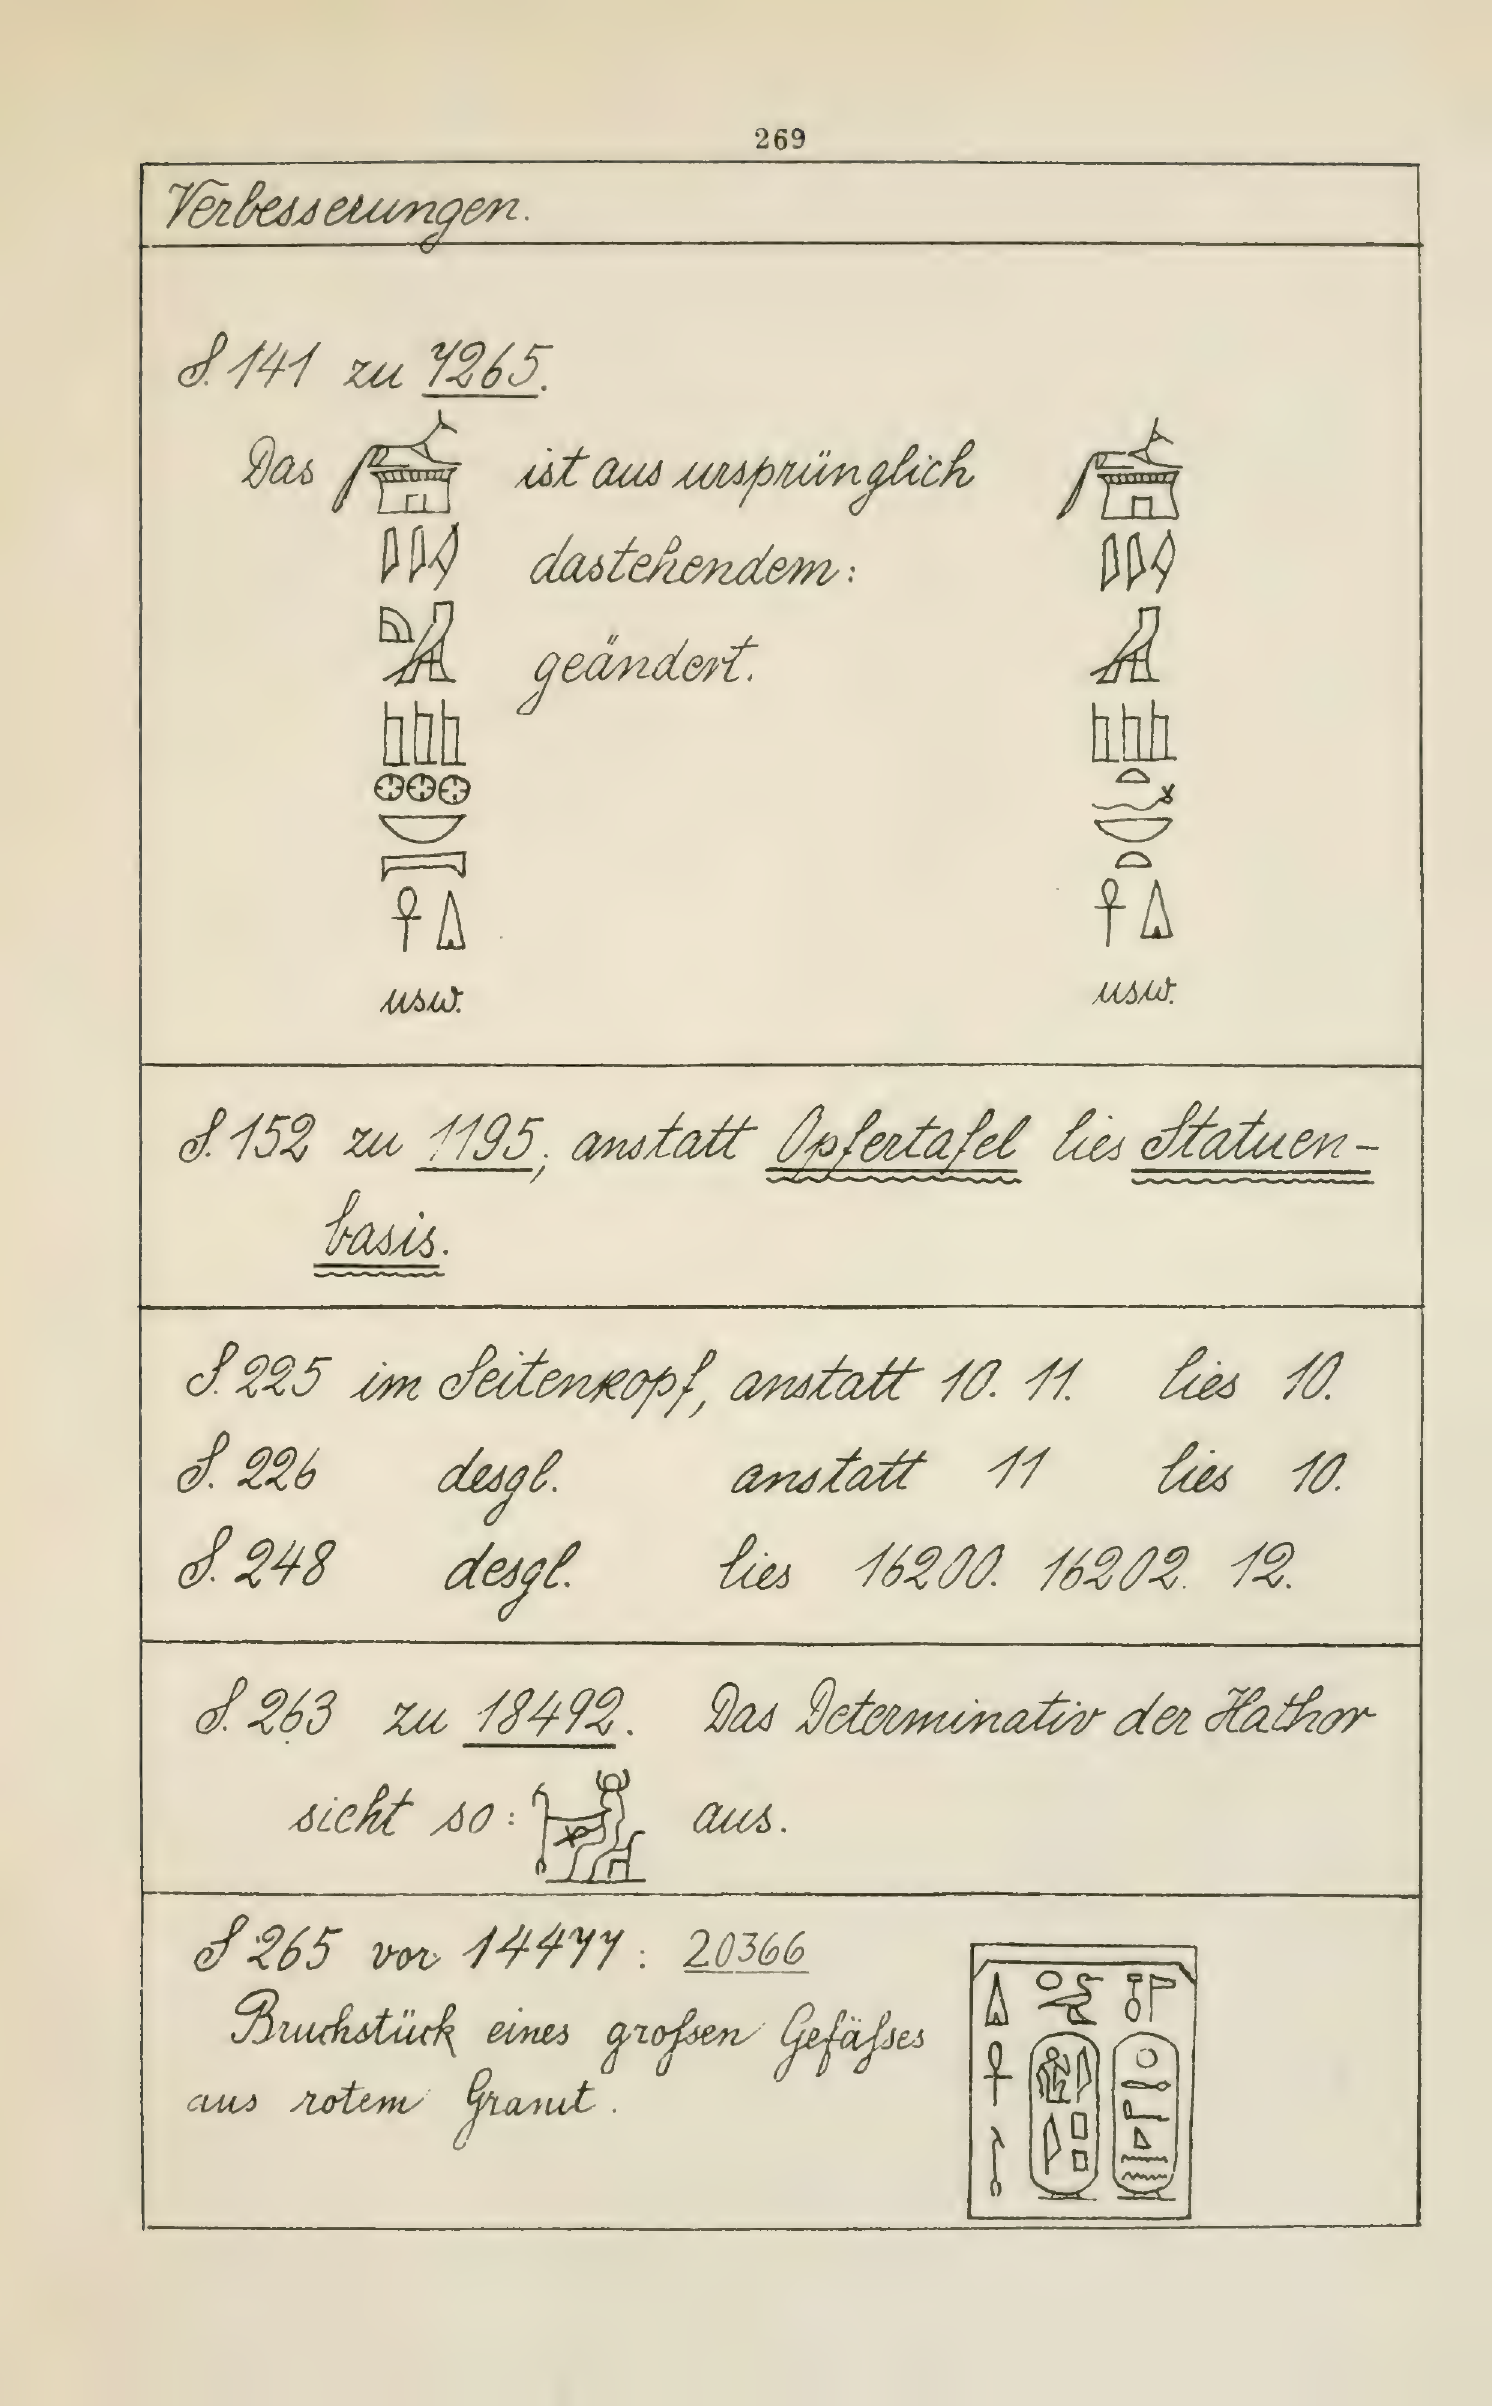 269
Verbesserungen.
S. 141 zu 7265.
Das ist aus ursprünglich
dastehendem:
geändert.
usw. usw.
S. 152 zu 1195, anstatt Opfertafel lies Statuen-
basis.
S. 225 im Seitenkopf, anstatt 10. 11. lies 10.
S. 226 desgl. anstatt 11 lies 10.
S. 248 desgl. lies 16200. 16202. 12.
S. 263 zu 18492. Das Determinativ der Hathor
sieht so: aus.
S 265 vor 14477: 20366
Bruchstück eines großen Gefäßes
aus rotem Granit.